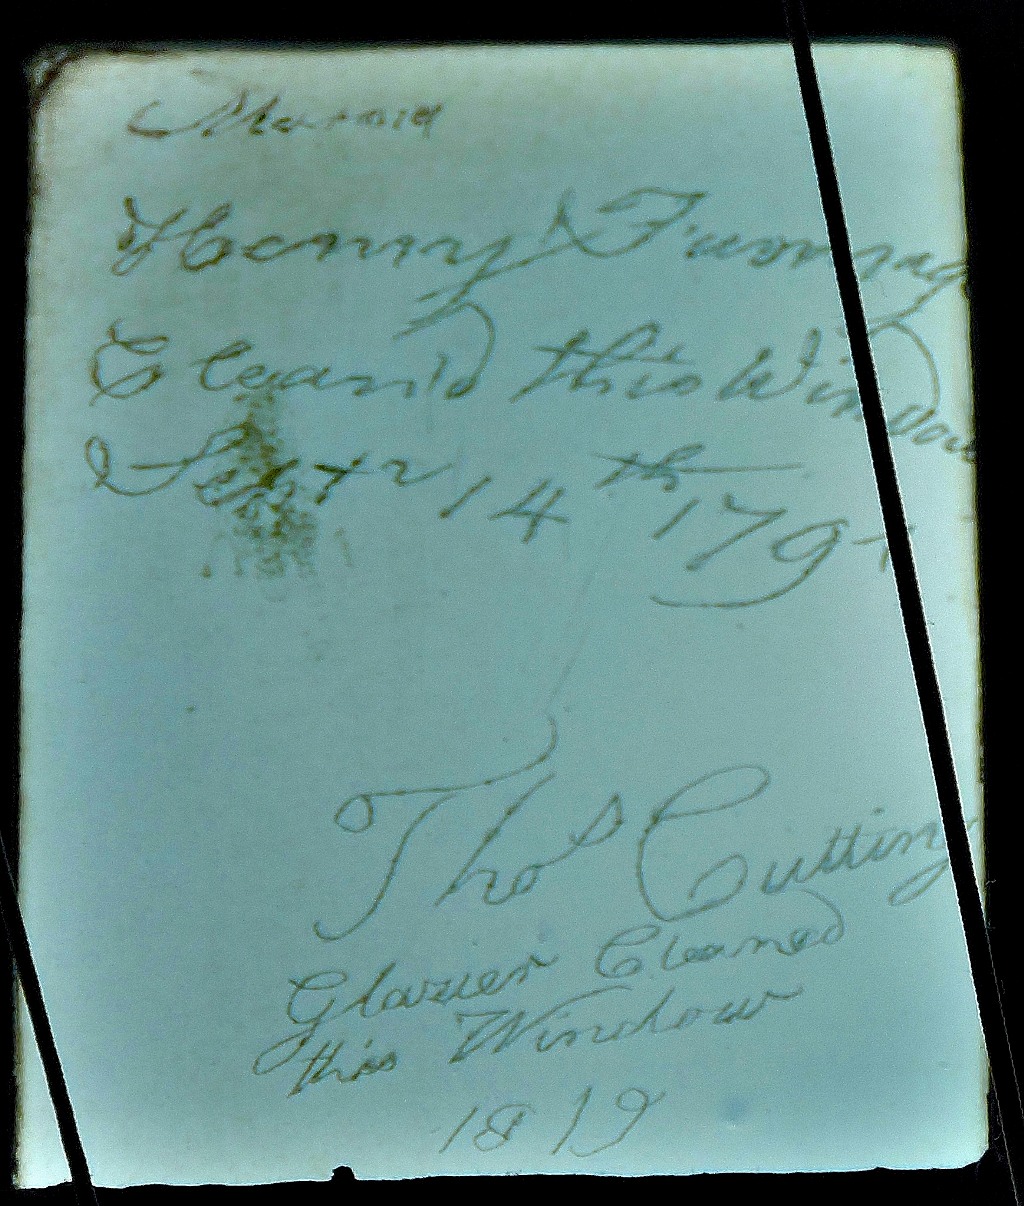 Henry
Clean'd this Window
Septr 14th 179
Thos Cutting
Glazier Cleaned
this Window
1819